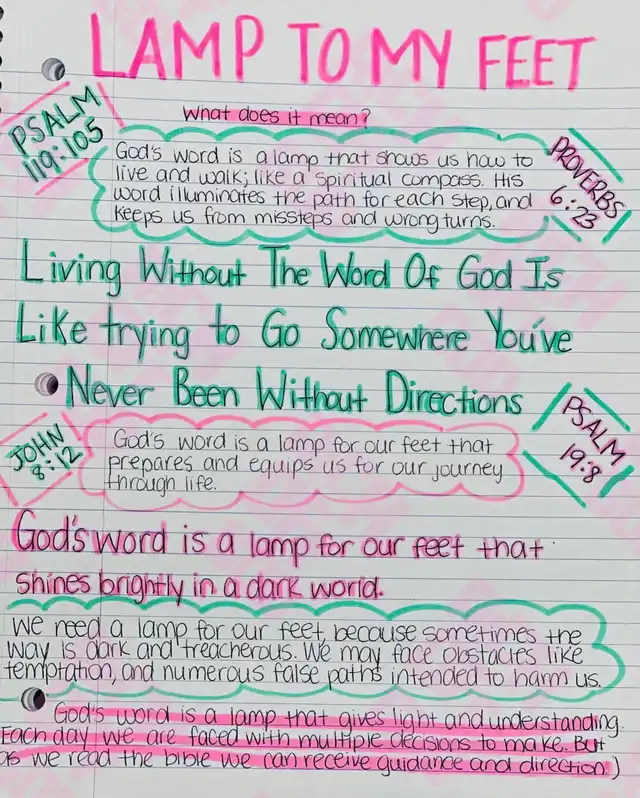 LAMP TO MY FEET
What does it mean?
PSALM
119:105
God's word is a lamp that shows us how to
live and walk; like a spiritual compass. His
word illuminates the path for each step, and
keeps us from missteps and wrong turns.
PROVERBS
6:23
Living Without The Word Of God Is
Like trying to Go Somewhere You've
Never Been Without Directions
JOHN
8:12
God's word is a lamp for our feet that
prepares and equips us for our journey
through life.
PSALM
19:8
God's word is a lamp for our feet that
shines brightly in a dark world.
We need a lamp for our feet, because sometimes the
way is dark and treacherous. We may face obstacles like
temptation, and numerous false paths intended to harm us.
God's word is a lamp that gives light and understanding.
Each day we are faced with multiple decisions to make. But
as we read the bible we can receive guidance and direction:)